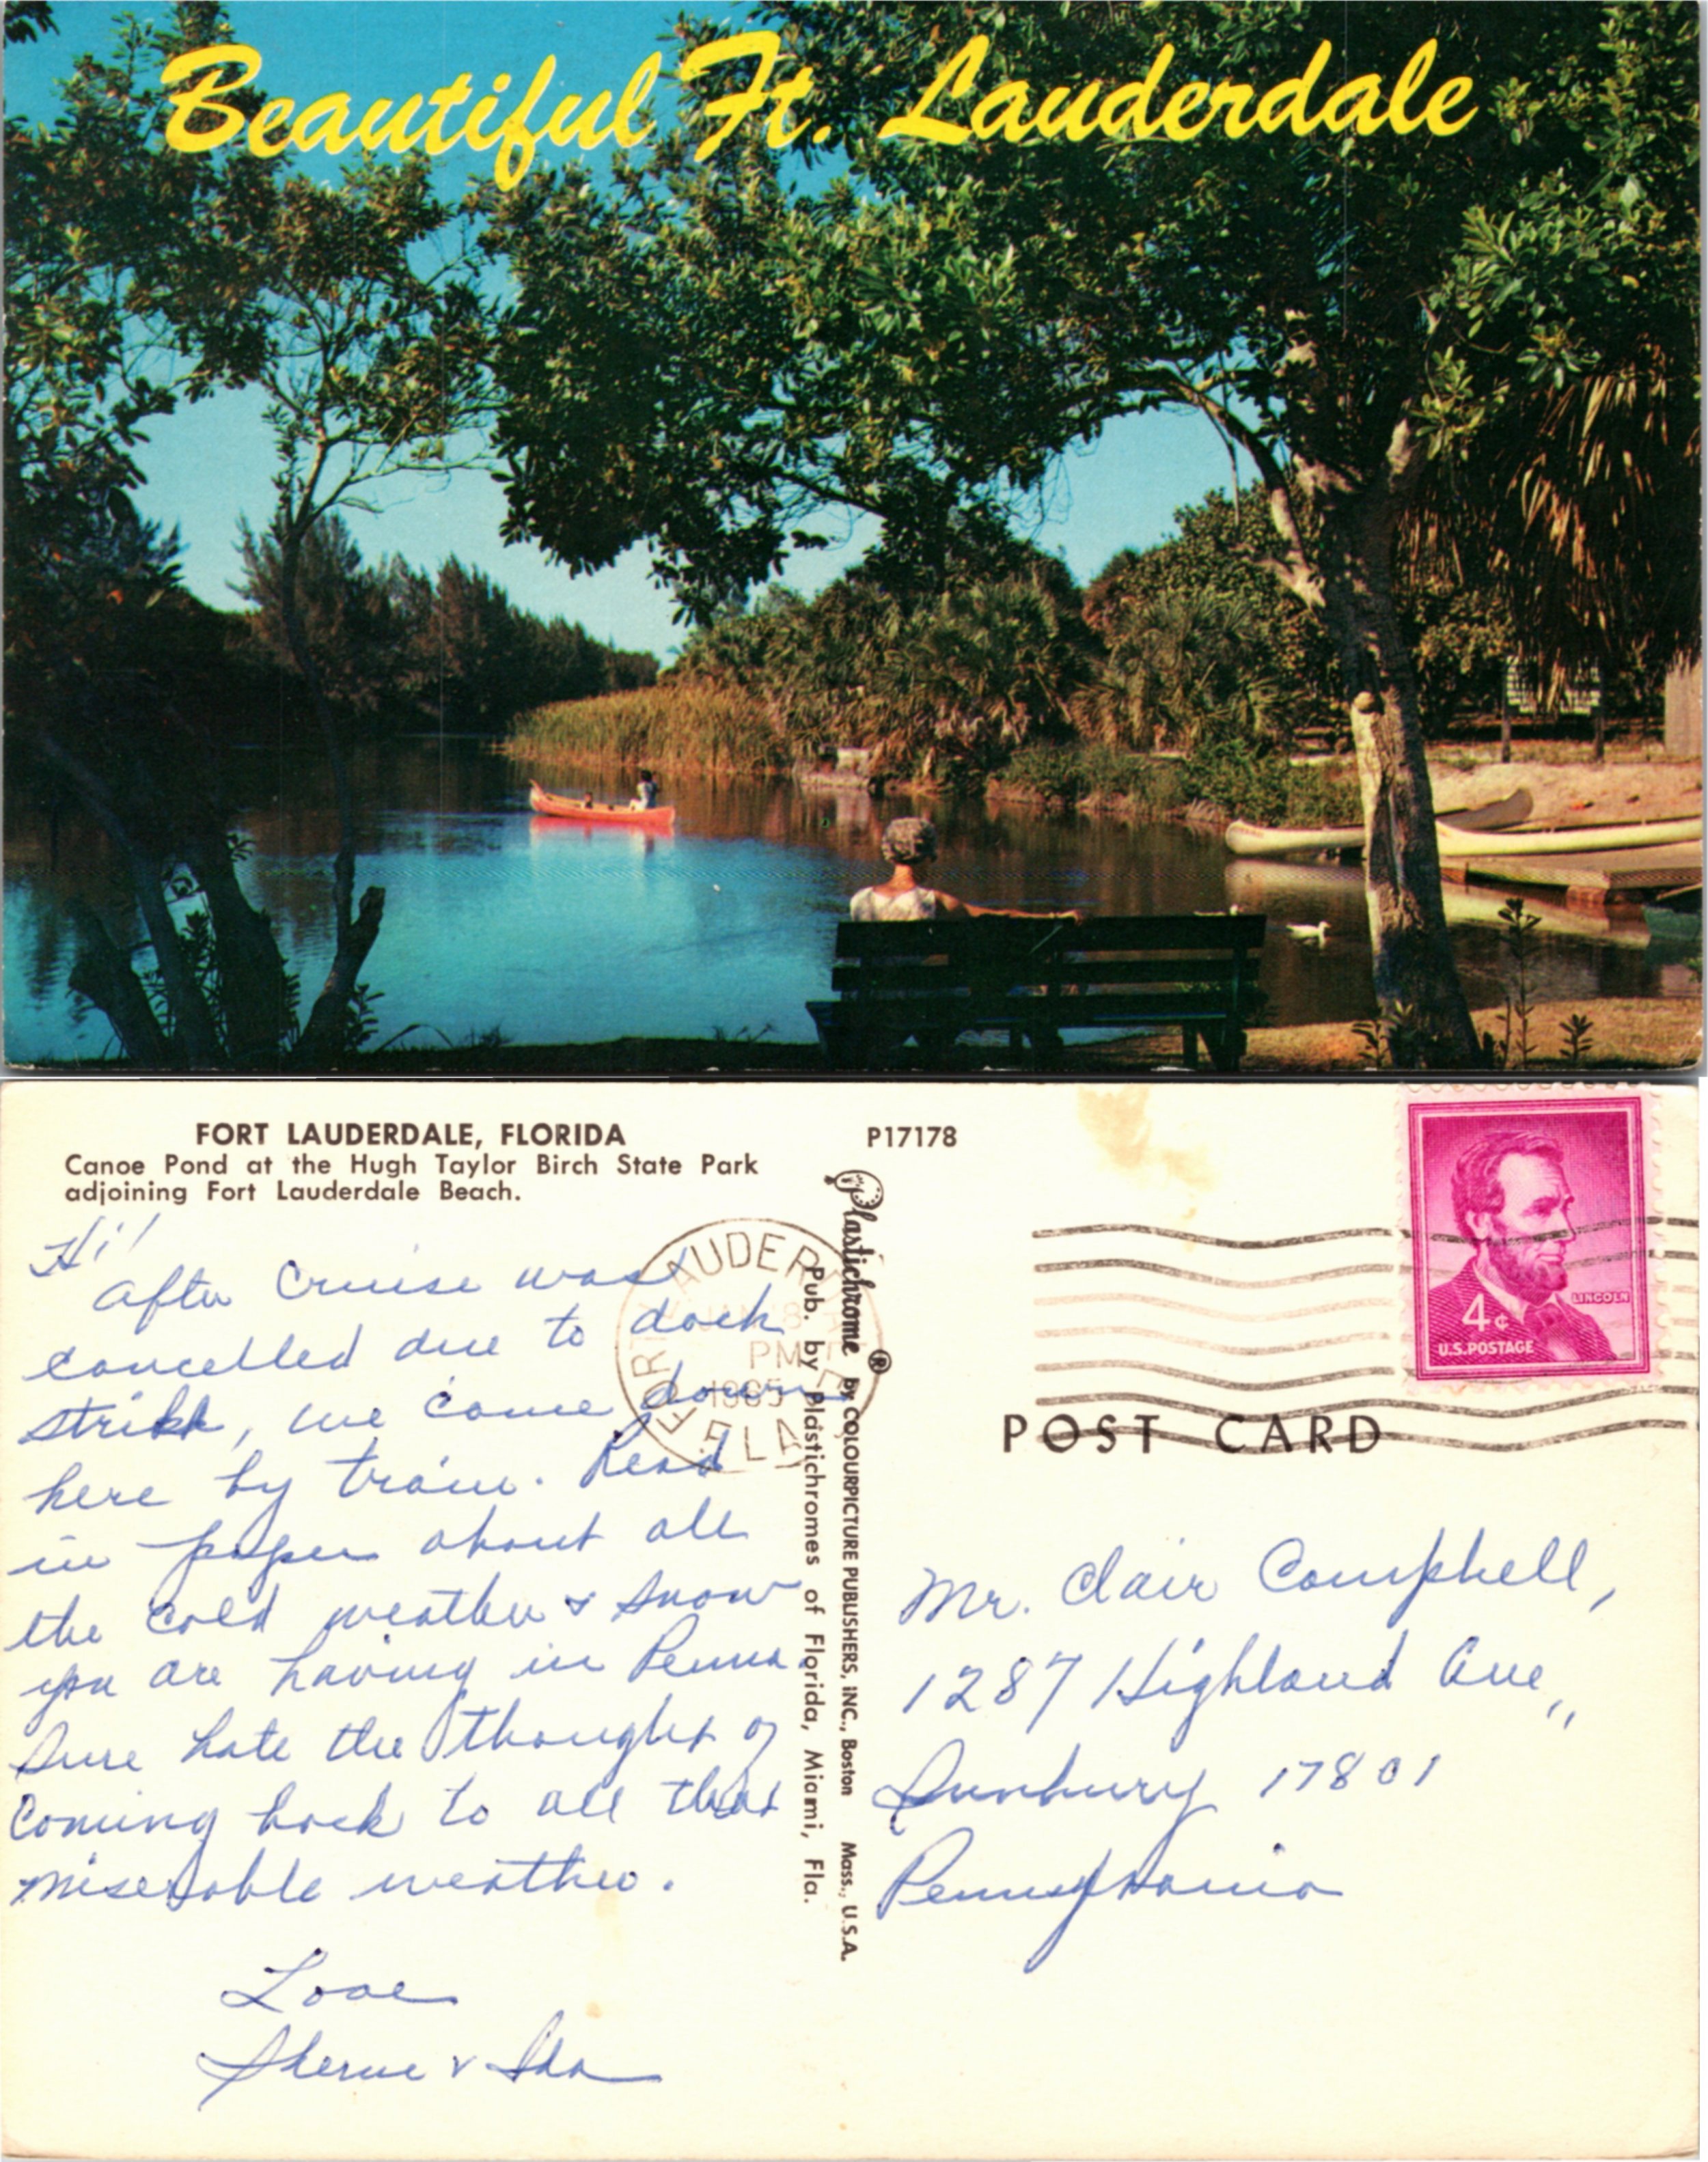 Beautiful Ft. Lauderdale
FORT LAUDERDALE, FLORIDA
Canoe Pond at the Hugh Taylor Birch State Park
adjoining Fort Lauderdale Beach.
P17178
Hi!
After Cruise was
cancelled due to dock
strike, we came down
here by train. Read
in paper about all
the cold weather & snow
you are having in Penna.
Sure hate the thought of
coming back to all that
miserable weather.
Love
& Ida
FORT LAUDERDALE
JAN 18
PM
1965
FLA.
Plastichrome ® by COLOURPICTURE PUBLISHERS, INC., Boston Mass., U.S.A.
Pub. by Plastichromes of Florida, Miami, Fla.
LINCOLN
4¢
U.S. POSTAGE
POST CARD
Mr. Clair Campbell,
1287 Highland Ave.,
Sunbury 17801
Pennsylvania